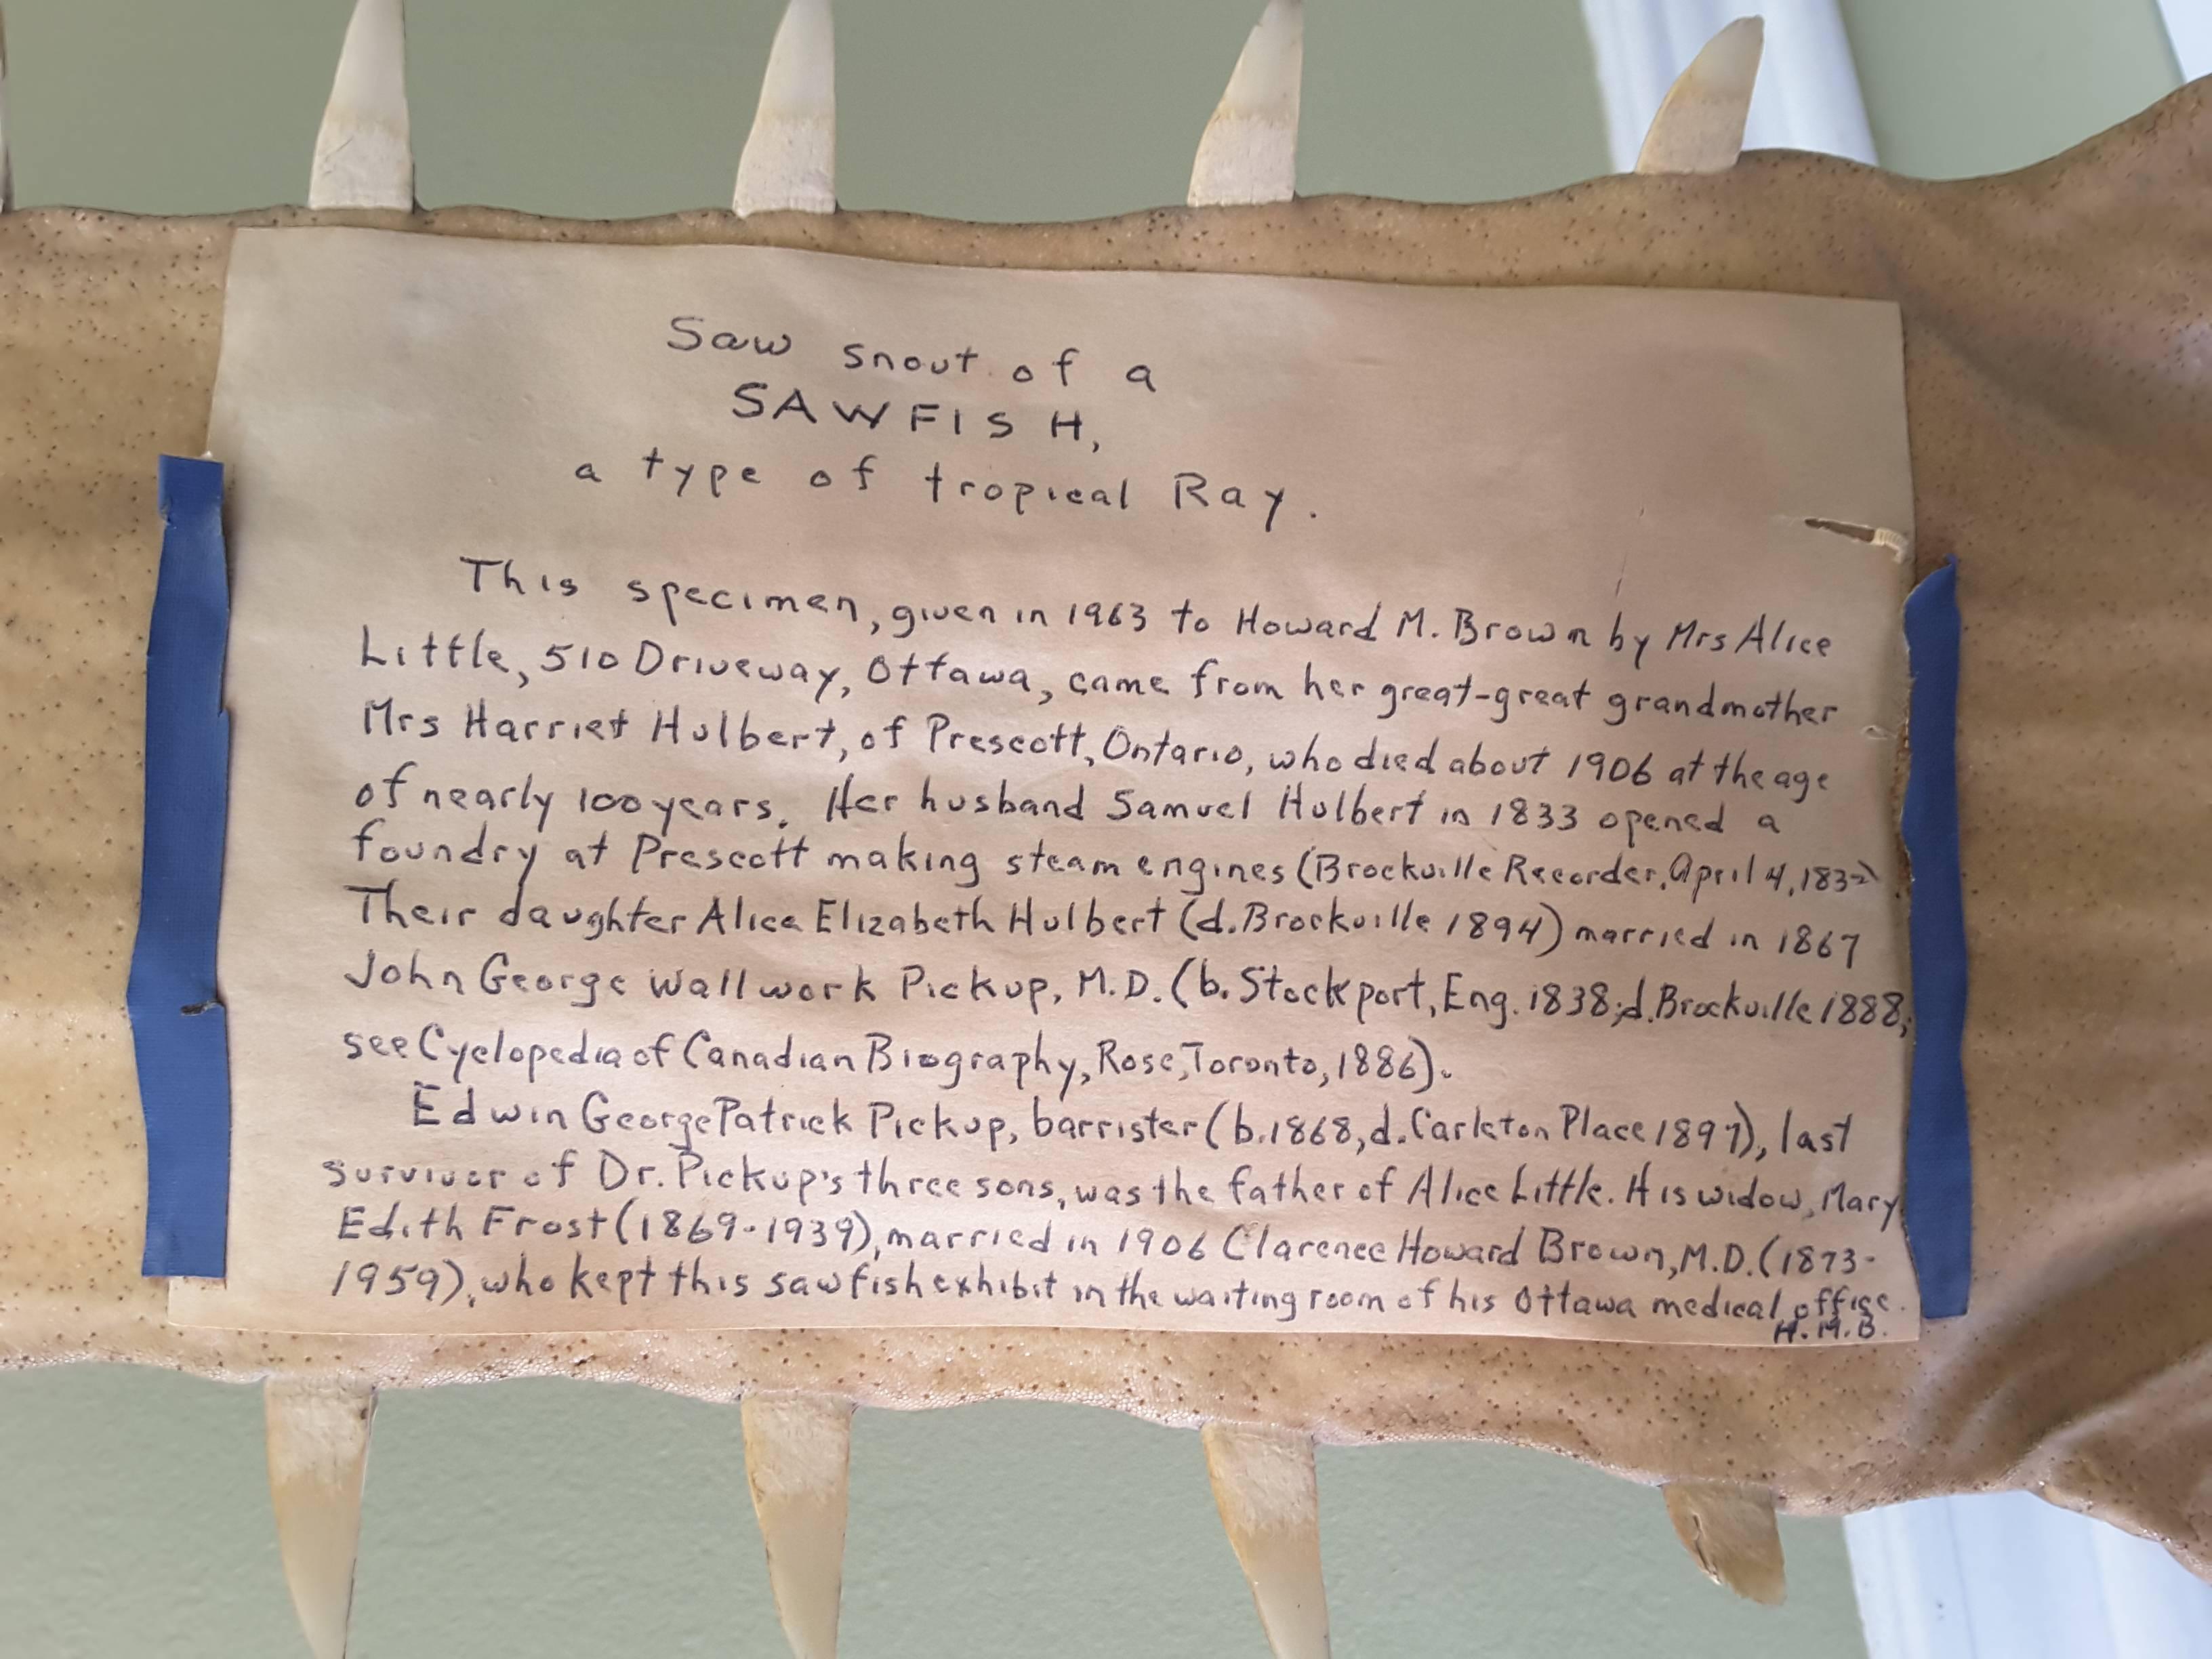 Saw snout of a
SAWFISH,
a type of tropical Ray.
This specimen, given in 1963 to Howard M. Brown by Mrs Alice
Little, 510 Driveway, Ottawa, came from her great-great grandmother
Mrs Harriet Hulbert, of Prescott, Ontario, who died about 1906 at the age
of nearly 100 years. Her husband Samuel Hulbert in 1833 opened a
foundry at Prescott making steam engines (Brockville Recorder, April 4,
Their daughter Alice Elizabeth Hulbert (d. Brockville 1894) married in 1867
John George Wallwork Pickup, M.D. (b. Stockport, Eng. 1838; d. Brockville 1888;
see Cyclopedia of Canadian Biography, Rose, Toronto, 1886).
Edwin George Patrick Pickup, barrister (b. 1868, d. Carleton Place 1897), last
survivor of Dr. Pickup's three sons, was the father of Alice Little. His widow, Mary
Edith Frost (1869-1939), married in 1906 Clarence Howard Brown, M.D. (1873-
1959), who kept this sawfish exhibit in the waiting room of his Ottawa medical office.
H.M.B.